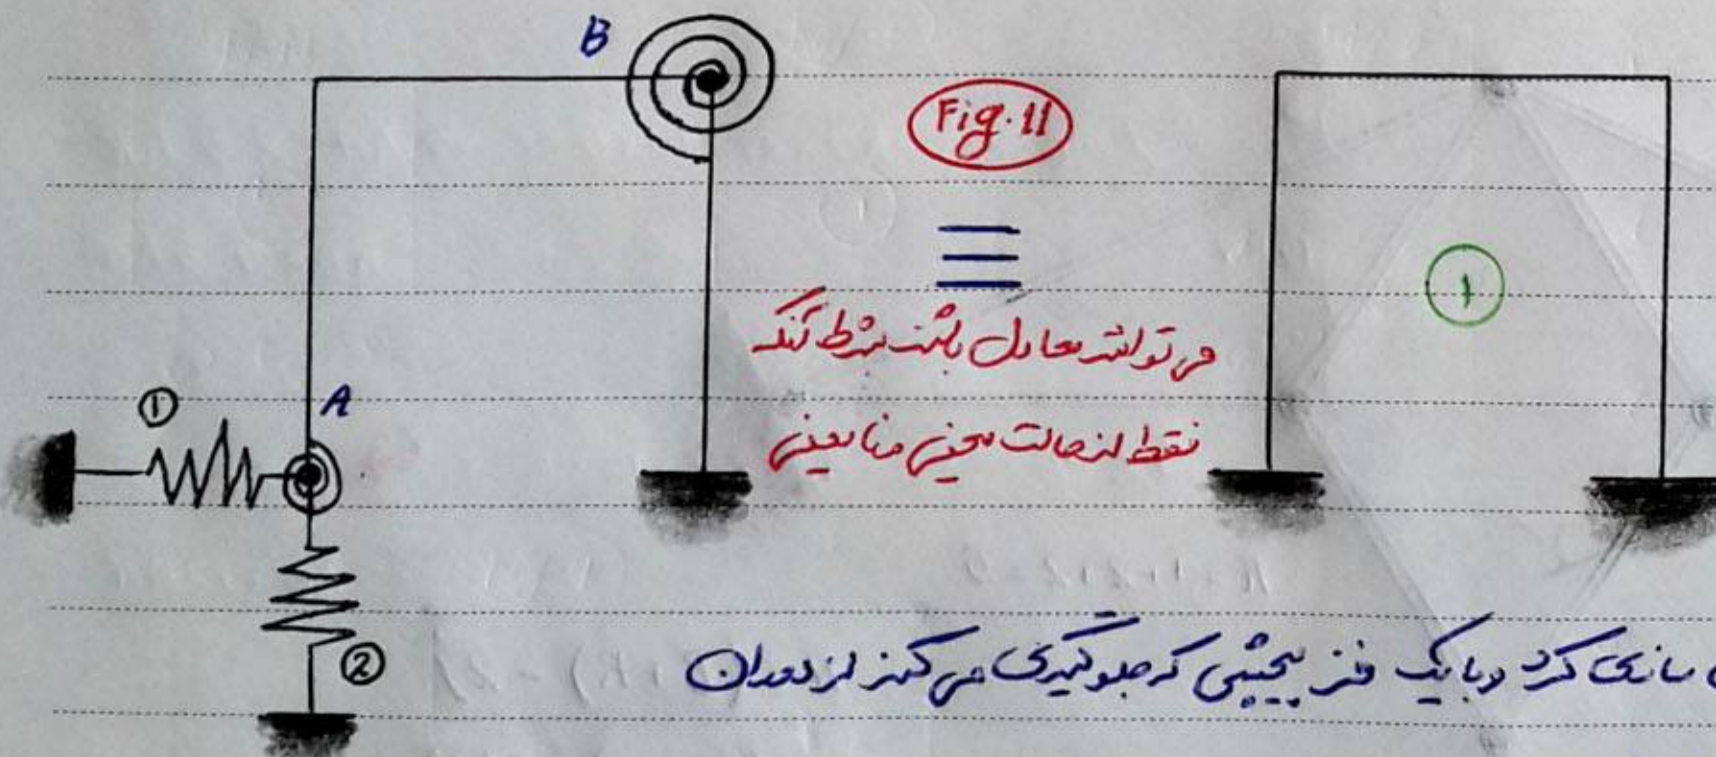 B
Fig. 11
می توانند معادل باشند بشرط آنکه
فقط از حالت یعنی
①
A
①
②
سازی کرد و با یک فنر پیچشی که جلوگیری می کند از دوران